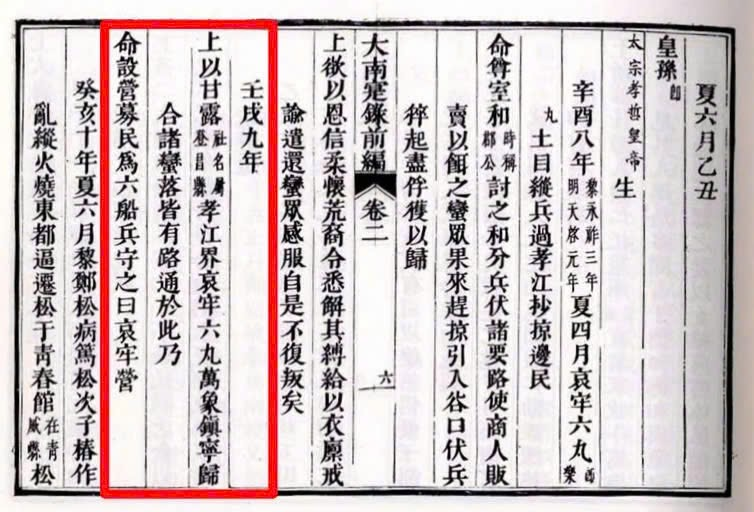 夏六月乙丑
皇孫卽
太宗孝哲皇帝生
辛酉八年黎永祚三年明天啓元年夏四月哀牢六丸卽樂
丸土目縱兵過孝江抄掠邊民
命尊室和時稱郡公討之和分兵伏諸要路使商人販
賣以餌之蠻眾果來趕掠引入谷口伏兵
猝起盡俘獲以歸
大南寔錄前編 卷二 六
上欲以恩信柔懷荒裔令悉解其縛給以衣廪戒
諭遣還蠻眾感服自是不復叛矣
壬戌九年
上以甘露社名屬登昌縣孝江界哀牢六丸萬象鎮寧歸
合諸蠻落皆有路通於此乃
命設營募民爲六船兵守之曰哀牢營
癸亥十年夏六月黎鄭松病篤松次子椿作
亂縱火燒東都逼遷松于青春館在青威縣松